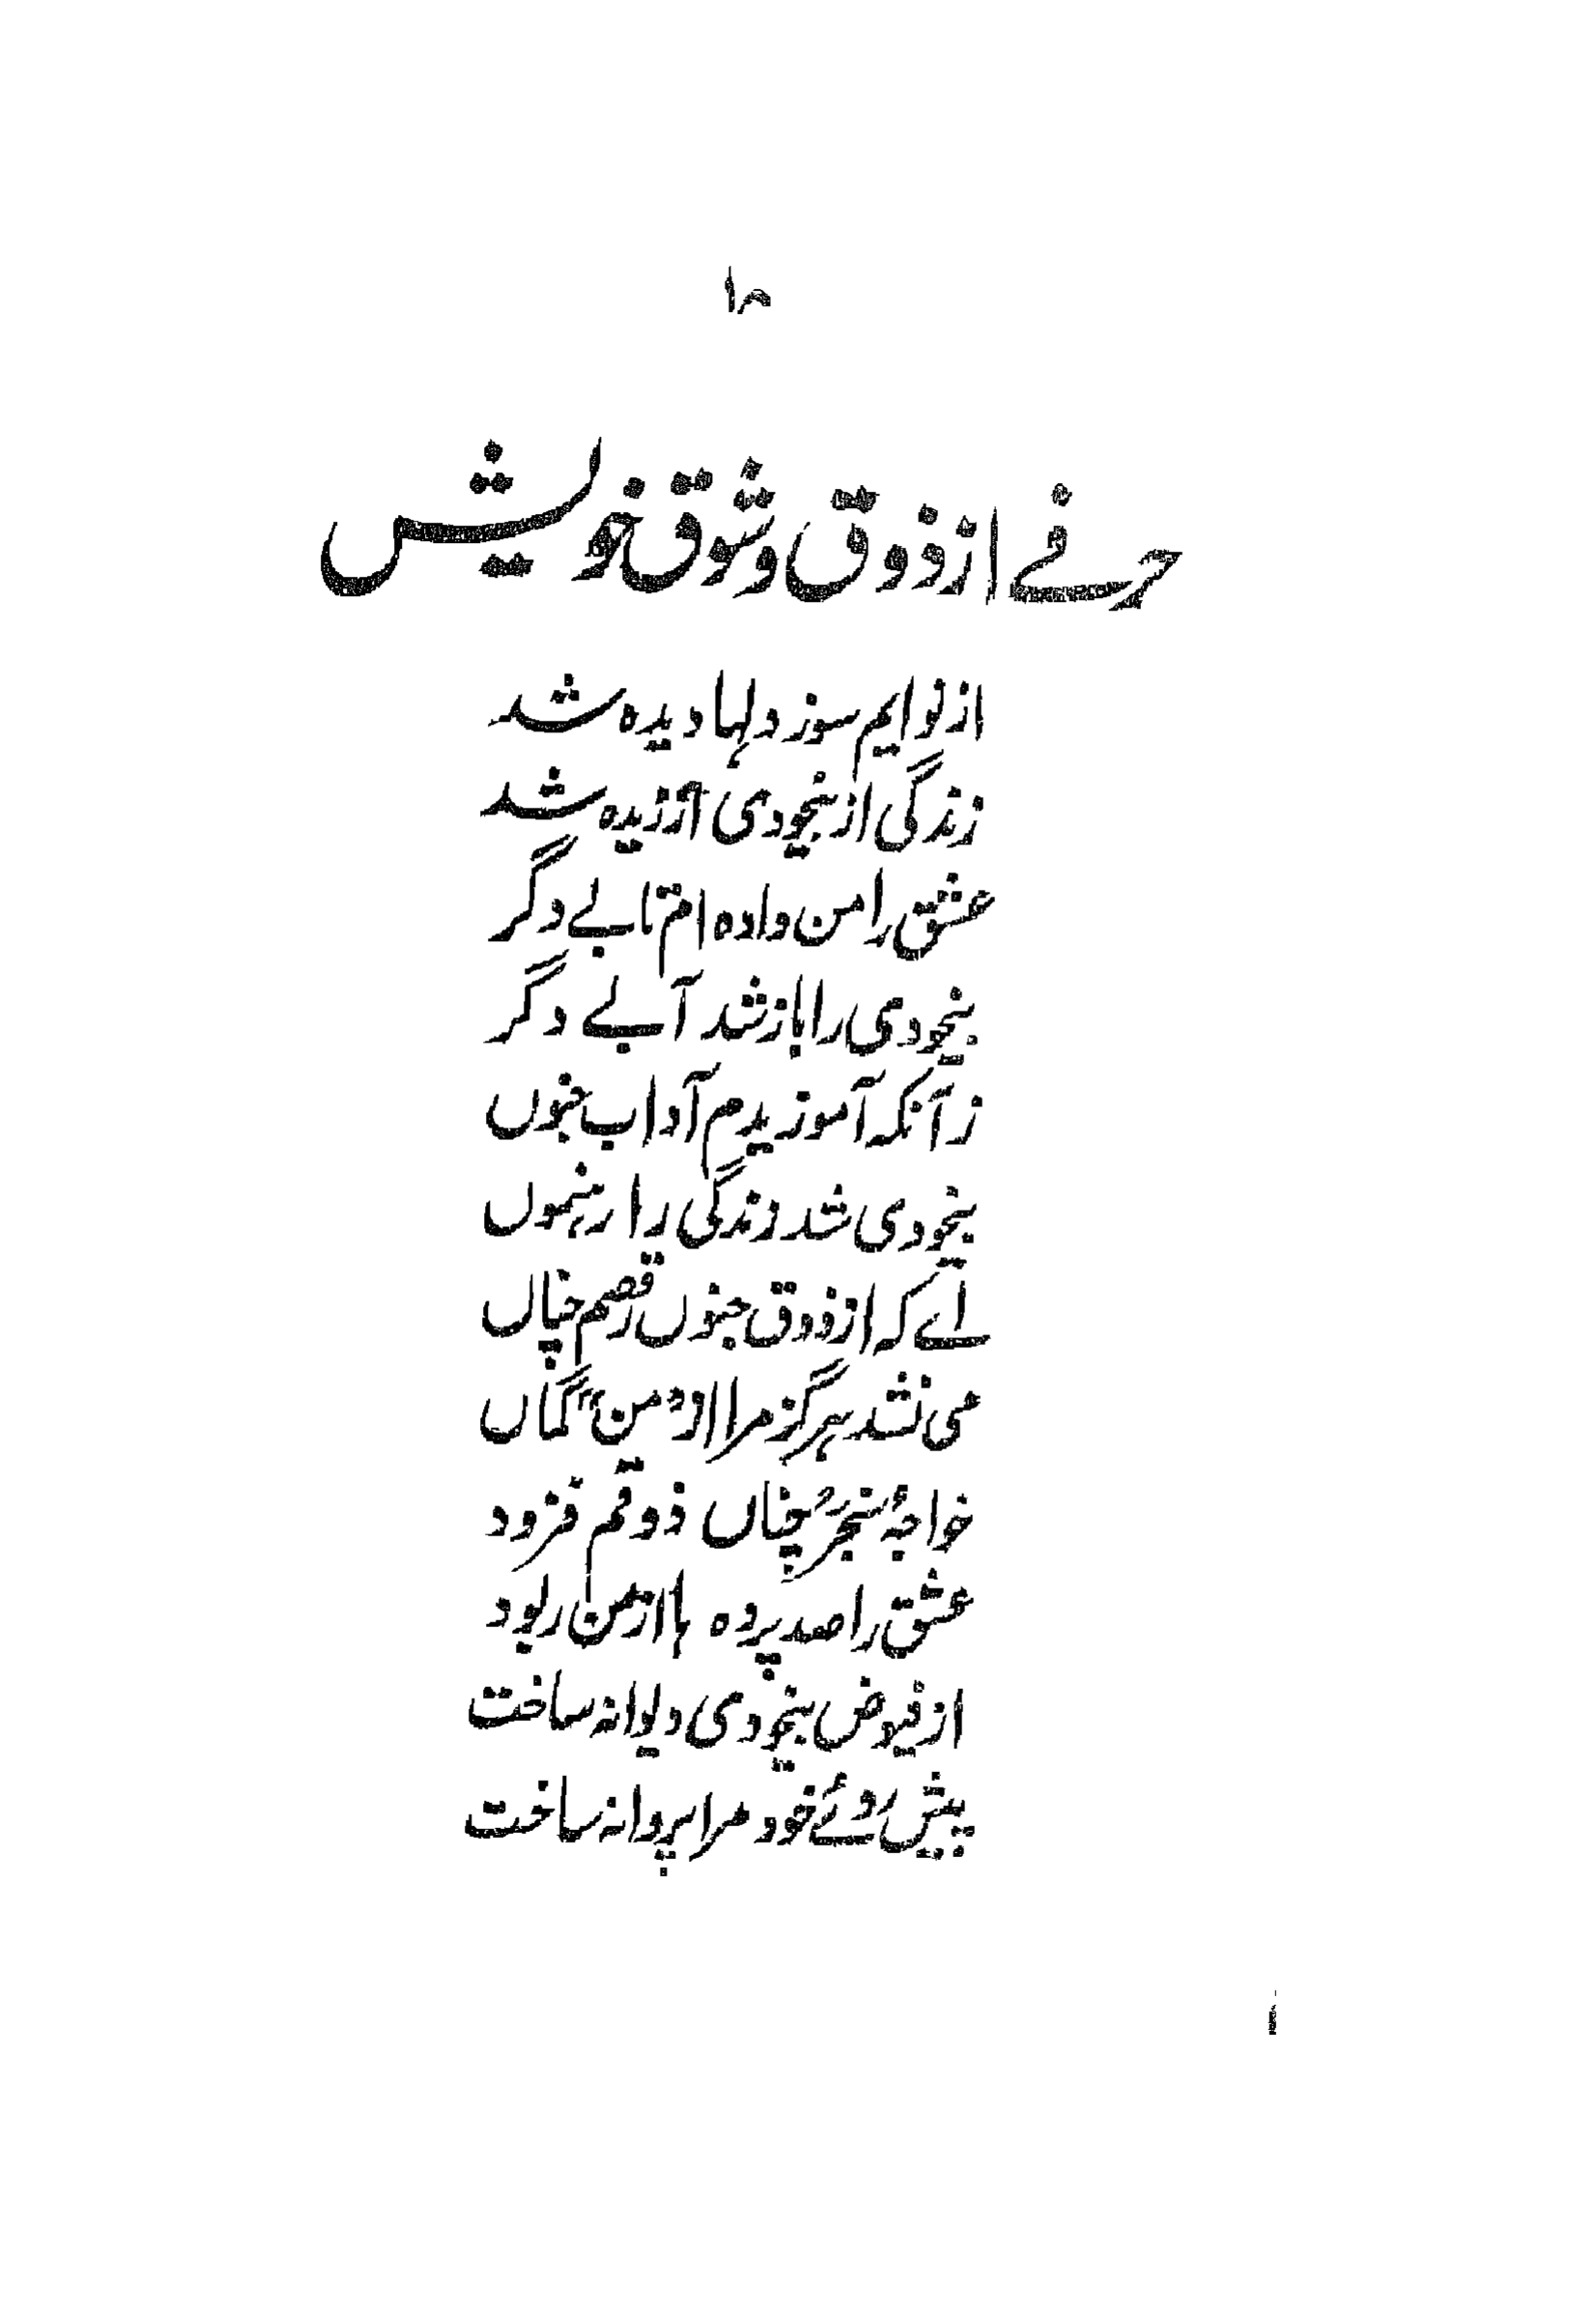 ۱۸
حرفے از ذوق و شوق خویش
از نوایم سوز دلہا دیدہ شد
زندگی از بیخودی ارزیدہ شد
عشق را من دادہ ام تابے دگر
بیخودی را باز شد آبے دگر
زآنکہ آموزیدم آداب جنوں
بیخودی شد زندگی را رہنموں
اے کہ از ذوق جنوں رقصم چناں
می نشد ہرگز مرا از "من" گماں
خواجۂ سنجرؒ چناں ذوقم فزود
عشق را صد پردہ ہا از من ربود
از فیوض بیخودی دیوانہ ساخت
پیش روئے خود مرا پروانہ ساخت